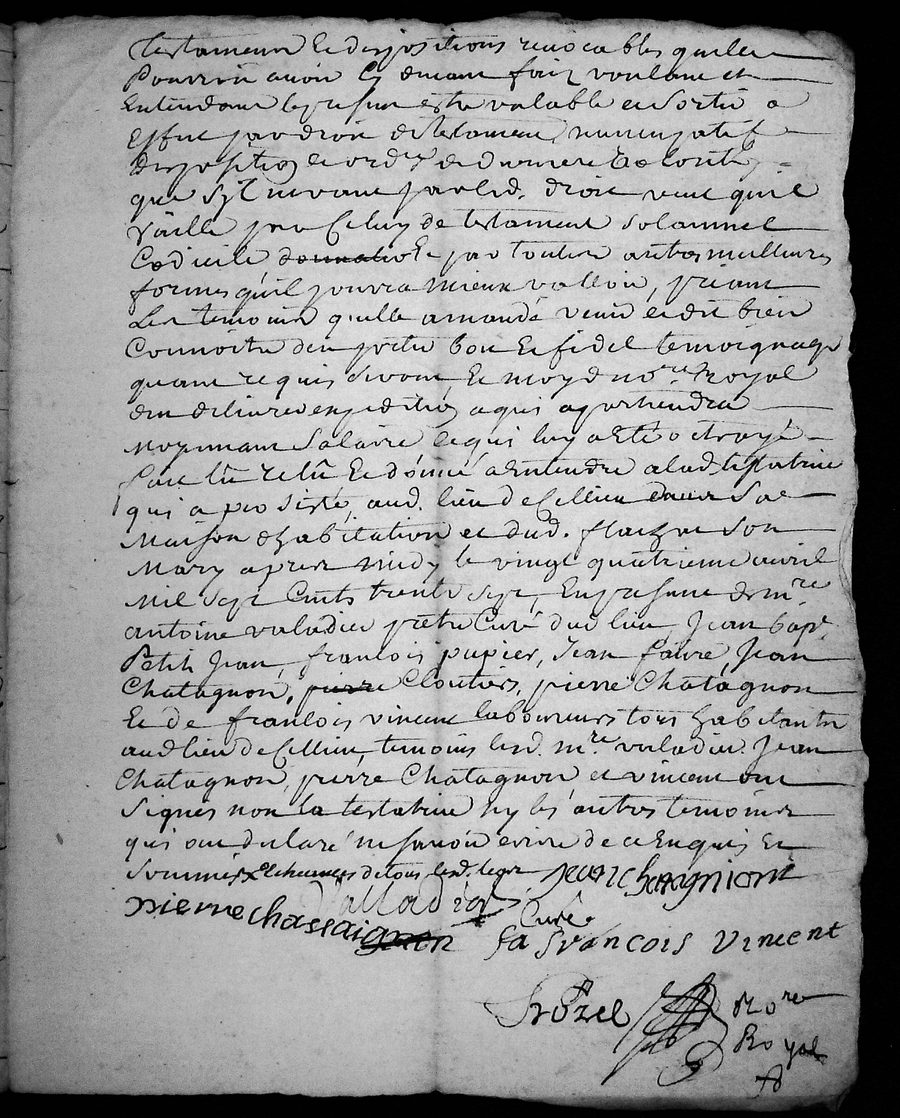 testament et dispositions revocables quelle
Pourroit avoir cy devant fait voulant et
Entendant le present estre valable et sortir a
Effet par droit de testament nuncupatif
disposition et ordre de derniere Volonté
que s'yl ne vaut par led. droit veut qu'il
Vaille par Celuy de testament solamnel
Codicile donnation Et par toutes autres meilleures
formes qu'il pourra mieux valloir, priant
Les temoins quelle a mandé venir et dit bien
Connoitre d'en porter bon Et fidel temoignage
quant requis seront, Et moyd nore Royal
d'en delivrer expedition a qui apartiendra
moyenant salaire ce qui luy a eté octroyé
fait lû relû Et donné a entendre a lad testatrice
qui a persisté, aud. lieu de Cellieu dans sa
Maison d'habitation et dud. flachat son
Mary apres midy le vingt quatrieme avril
Mil sept Cents trente sept, En presence de mre
antoine valadier prêtre Curé dud lieu, Jean bapt.
Petit Jean, francois pupier, Jean faure, Jean
Chatagnon, pierre Cloutiers, pierre Chatagnon
Et de francois vincent laboureurs tous habitants
aud lieu de Cellieu, temoins lesd. mre valadier. Jean
Chatagnon, pierre Chatagnon et vincent ont
signés non la testatrice ny les autres temoins
qui ont declaré ne savoir ecrire de ce Enquis Et
Sommis de tous lesd.
jean chatagniont
Valladier Curé
pierre chassaignon
fa francois vincent
Frozel Nore
Royal